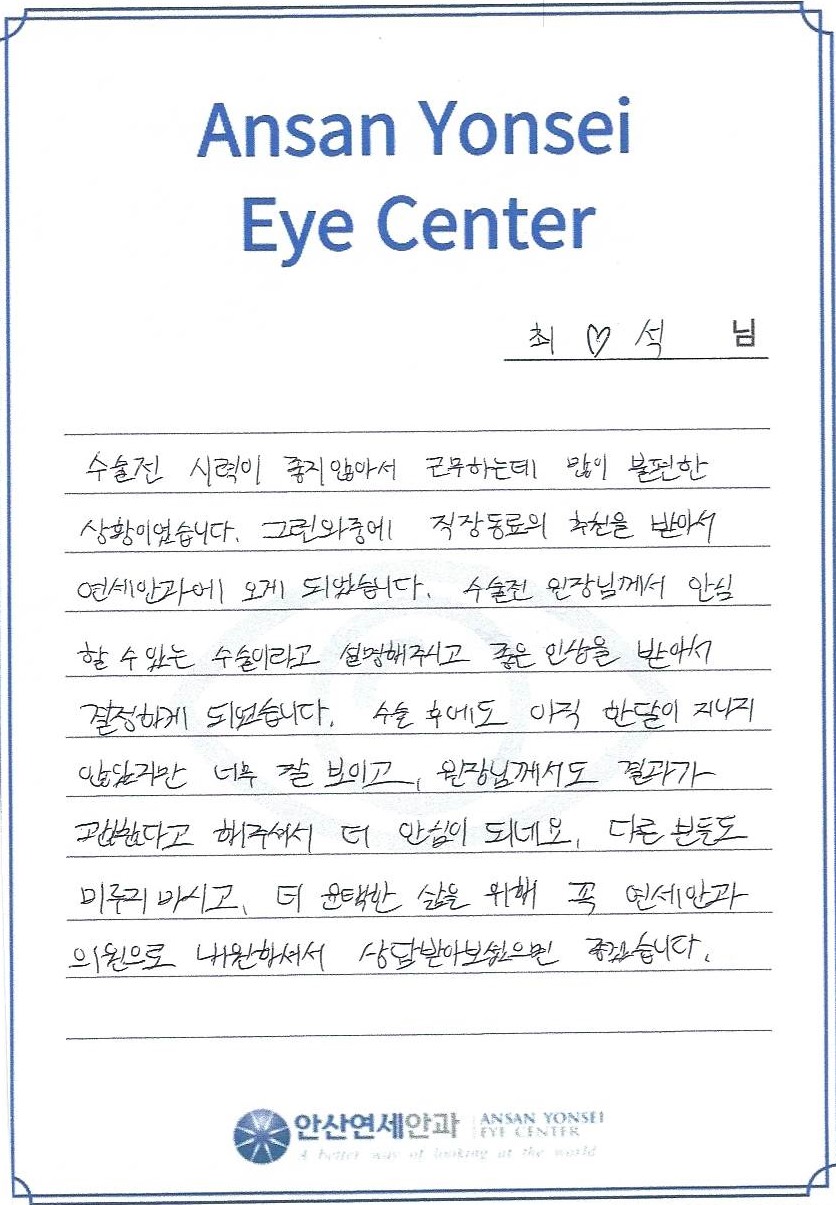 Ansan Yonsei
Eye Center
최 ♡ 석 님
수술전 시력이 좋지않아서 근무하는데 많이 불편한
상황이었습니다. 그런와중에 직장동료의 추천을 받아서
연세안과에 오게 되었습니다. 수술전 원장님께서 안심
할 수 있는 수술이라고 설명해주시고 좋은 인상을 받아서
결정하게 되었습니다. 수술 후에도 아직 한달이 지나지
않았지만 너무 잘 보이고, 원장님께서도 결과가
괜찮다고 해주셔서 더 안심이 되네요. 다른 분들도
미루지 마시고, 더 윤택한 삶을 위해 꼭 연세안과
의원으로 내원하셔서 상담받아보셨으면 좋겠습니다.
안산연세안과 ANSAN YONSEI
EYE CENTER
A better way of looking at the world